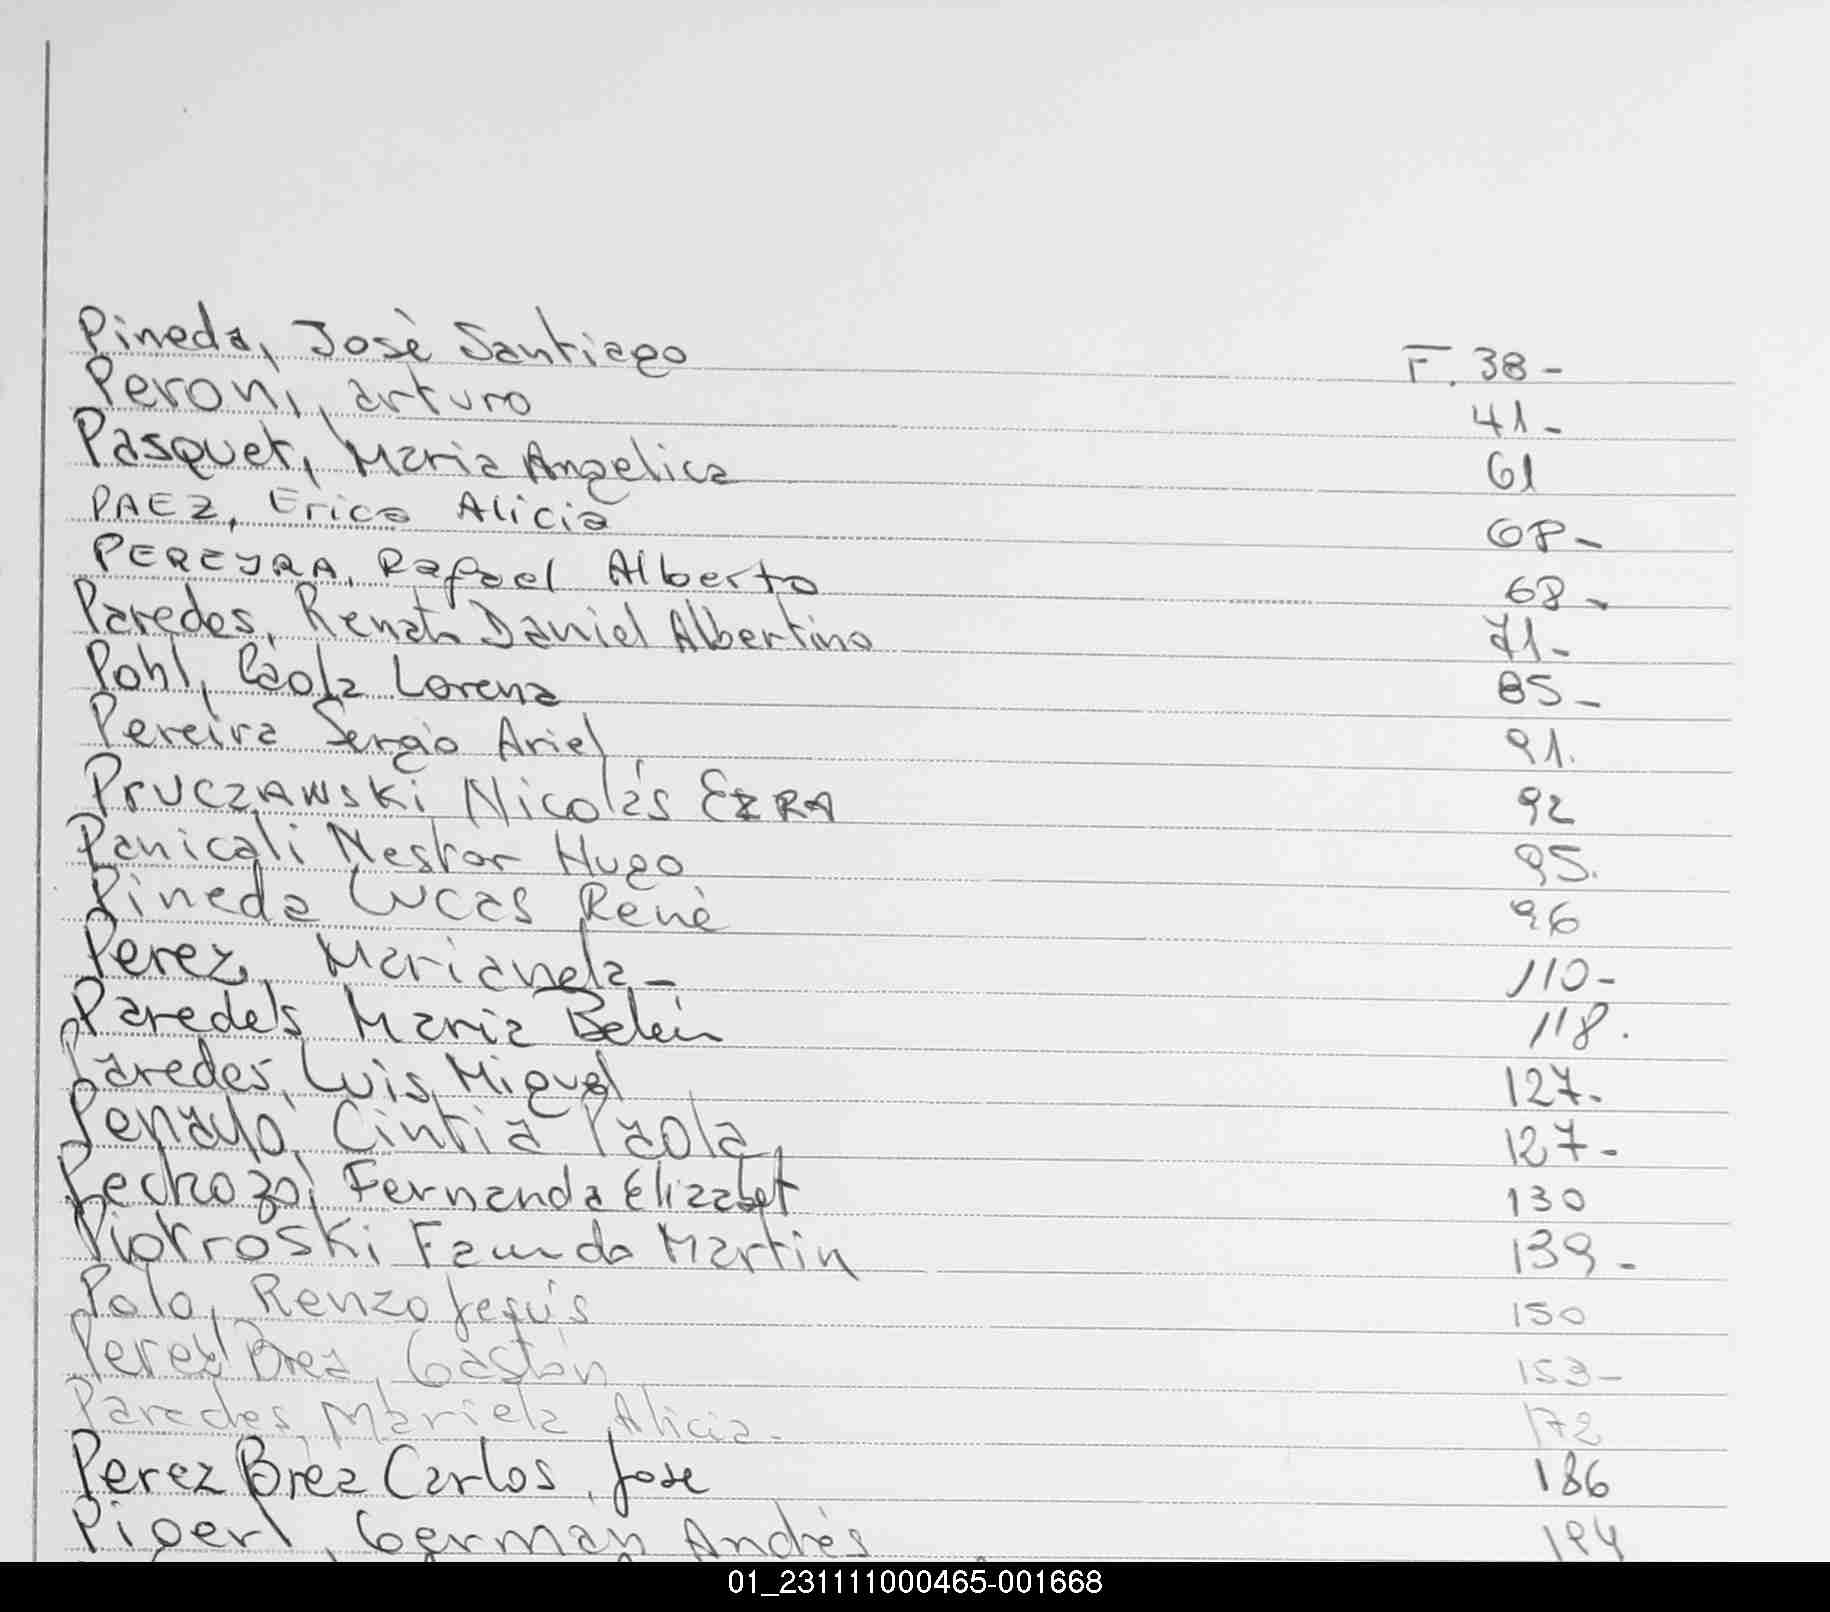 Pineda, Josè Santiago F. 38-
Peroni, arturo 41-
Pasquet, Maria Angelica 61
PAEZ, Erica Alicia 68-
PEREYRA, Rafael Alberto 68-
Paredes, Renato Daniel Albertino 71-
Pohl, Paola Lorena 85-
Pereira Sergio Ariel 91.
PRUCZAWSKi Nicolás EZRA 92
Panicali Nestor Hugo 95.
Pineda Lucas Renè 96
Perez, Marianela- 110-
Paredes Maria Belén 118.
Paredes, Luis Miguel 127-
Penayo, Cintia Paola 127-
Pedrozo, Fernanda Elizabet 130
Piotroski Martin 139-
Polo, Renzo Jesús 150
Perez Brez, Gastón 153-
Paredes, Mariela Alicia- 172
Perez Brez Carlos, Jose 186
Germán Andrés 194
01_231111000465-001668